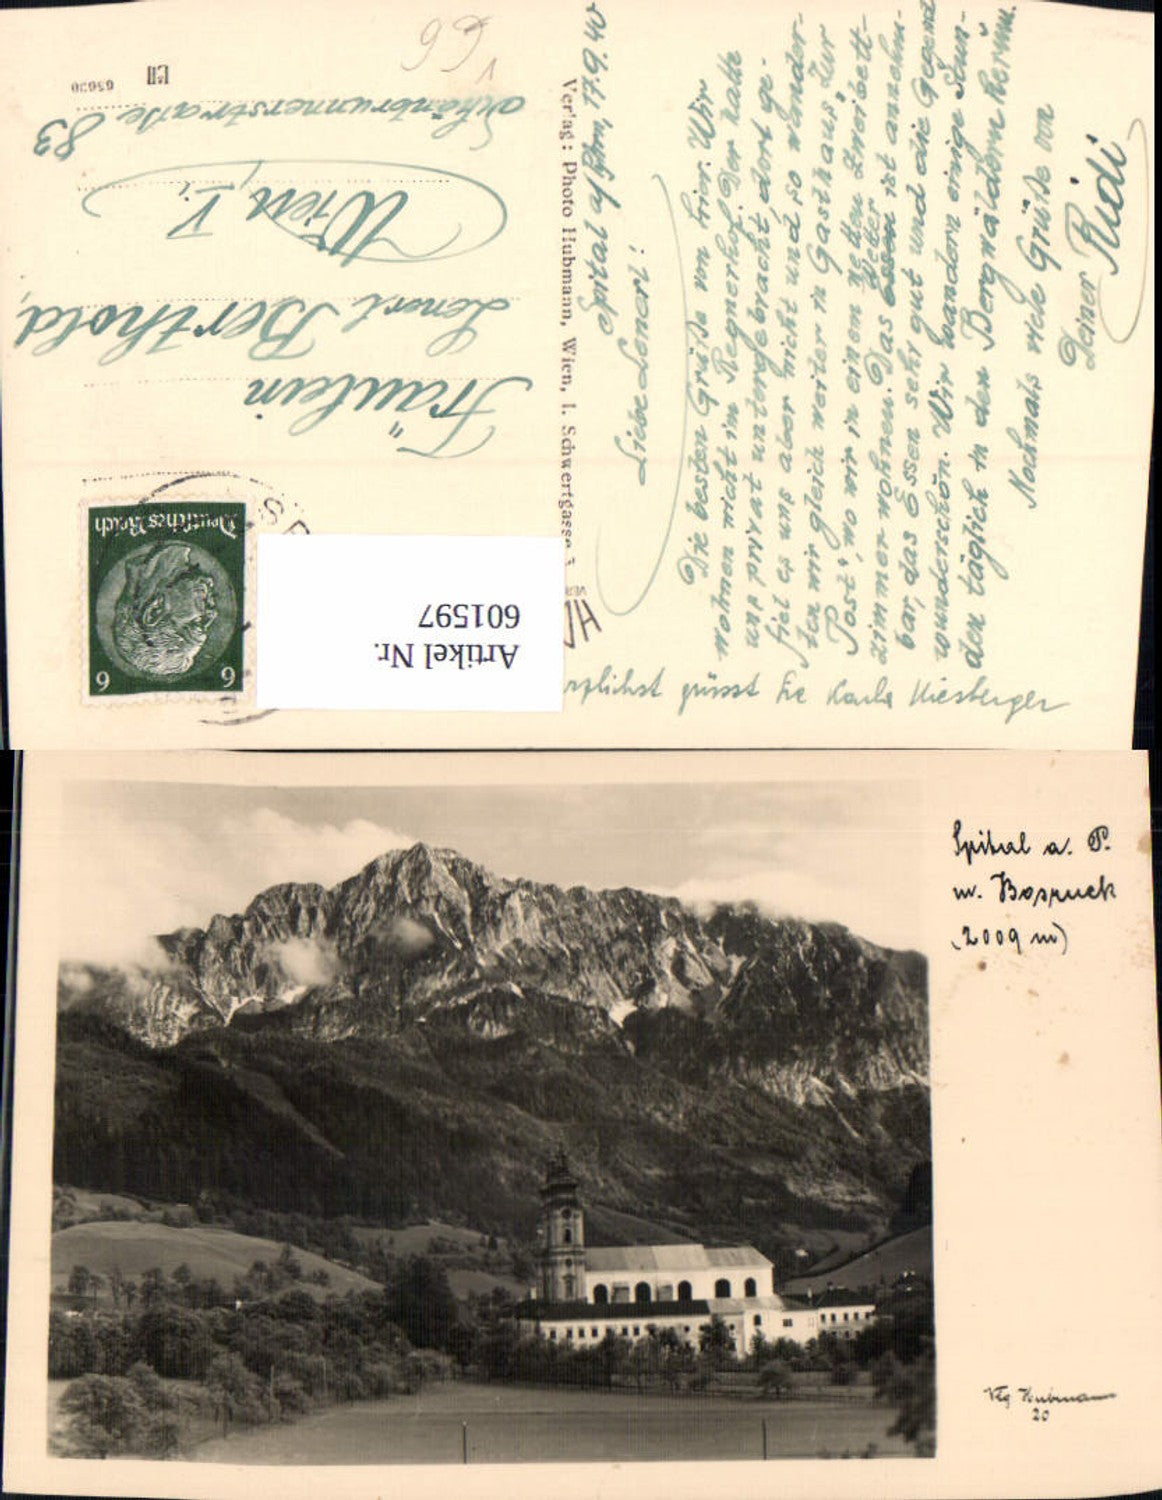 Spital a/Pyhrn, 17.9.40
Liebe Lenerl!
Die besten Grüße von hier. Wir
wohnen nicht im Regnerhof. Der hatte
uns privat untergebracht, dort ge-
fiel es uns aber nicht und so wander-
ten wir gleich weiter in Gasthaus "Zur
Post", wo wir in einem netten Zweibett-
zimmer wohnen. Das Wetter ist annehm-
bar, das Essen sehr gut und die Gegend
wunderschön. Wir wandern einige Stun-
den täglich in den Bergwäldern herum.
Nochmals viele Grüße von
Deiner Rudi
grüsst Sie Karla Kiesberger
Verlag: Photo Hubmann, Wien, I. Schwertgasse
Fräulein
Lenerl Berthold,
Wien, V.,
Schönbrunnerstraße 83
65620
66
1
Deutsches Reich
6 6
Artikel Nr.
601597
Spital a. P.
m. Bosruck
(2009 m)
Vlg Hubmann
20